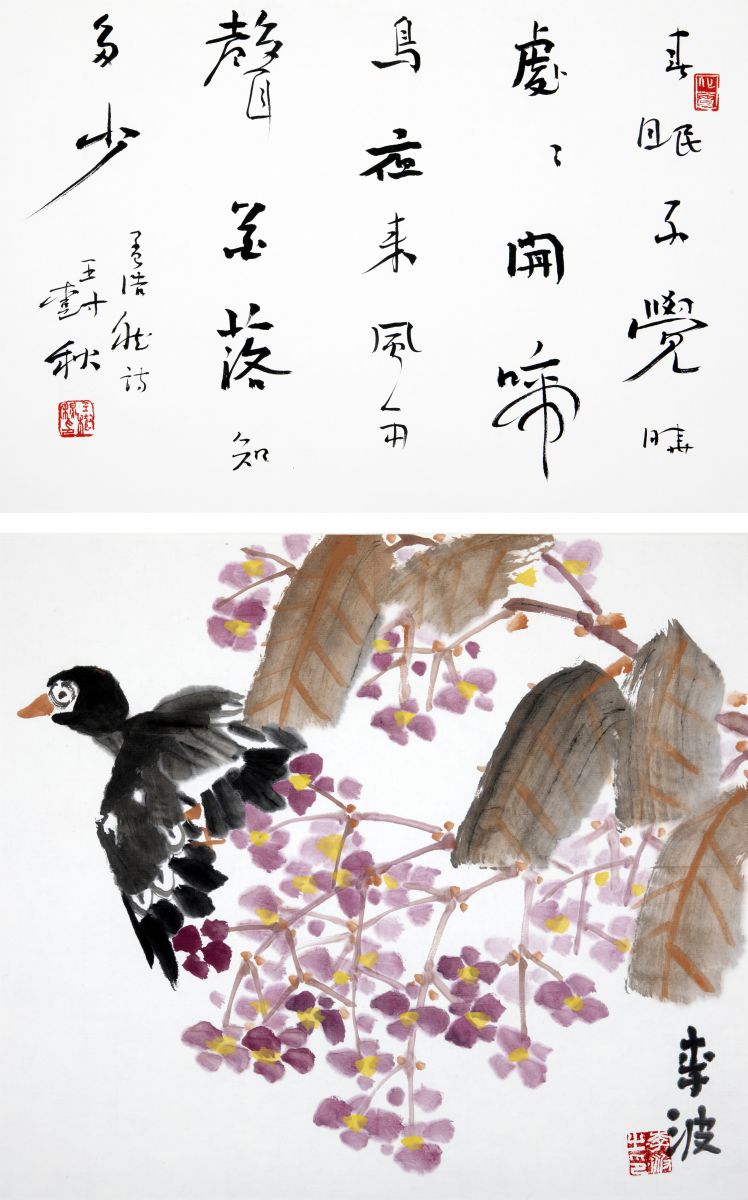 春眠不覺曉
處〻聞啼
鳥夜来風雨
聲花落知
多少
孟浩然詩
李波